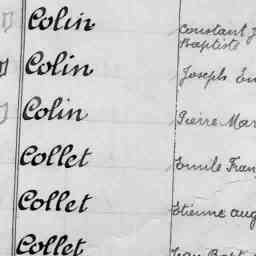 Colin Constant J
Baptiste
Colin Joseph Em
Colin Pierre Mar
Collet Emile Fran
Collet Etienne Aug
Collet Jean Bapt